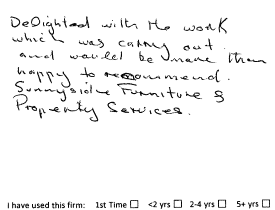 Delighted with the work
which was carry out.
and would be more than
happy to recommend.
Sunnyside Furniture &
Property Services.
I have used this firm: 1st Time ☐ <2 yrs ☐ 2-4 yrs ☐ 5+ yrs ☐